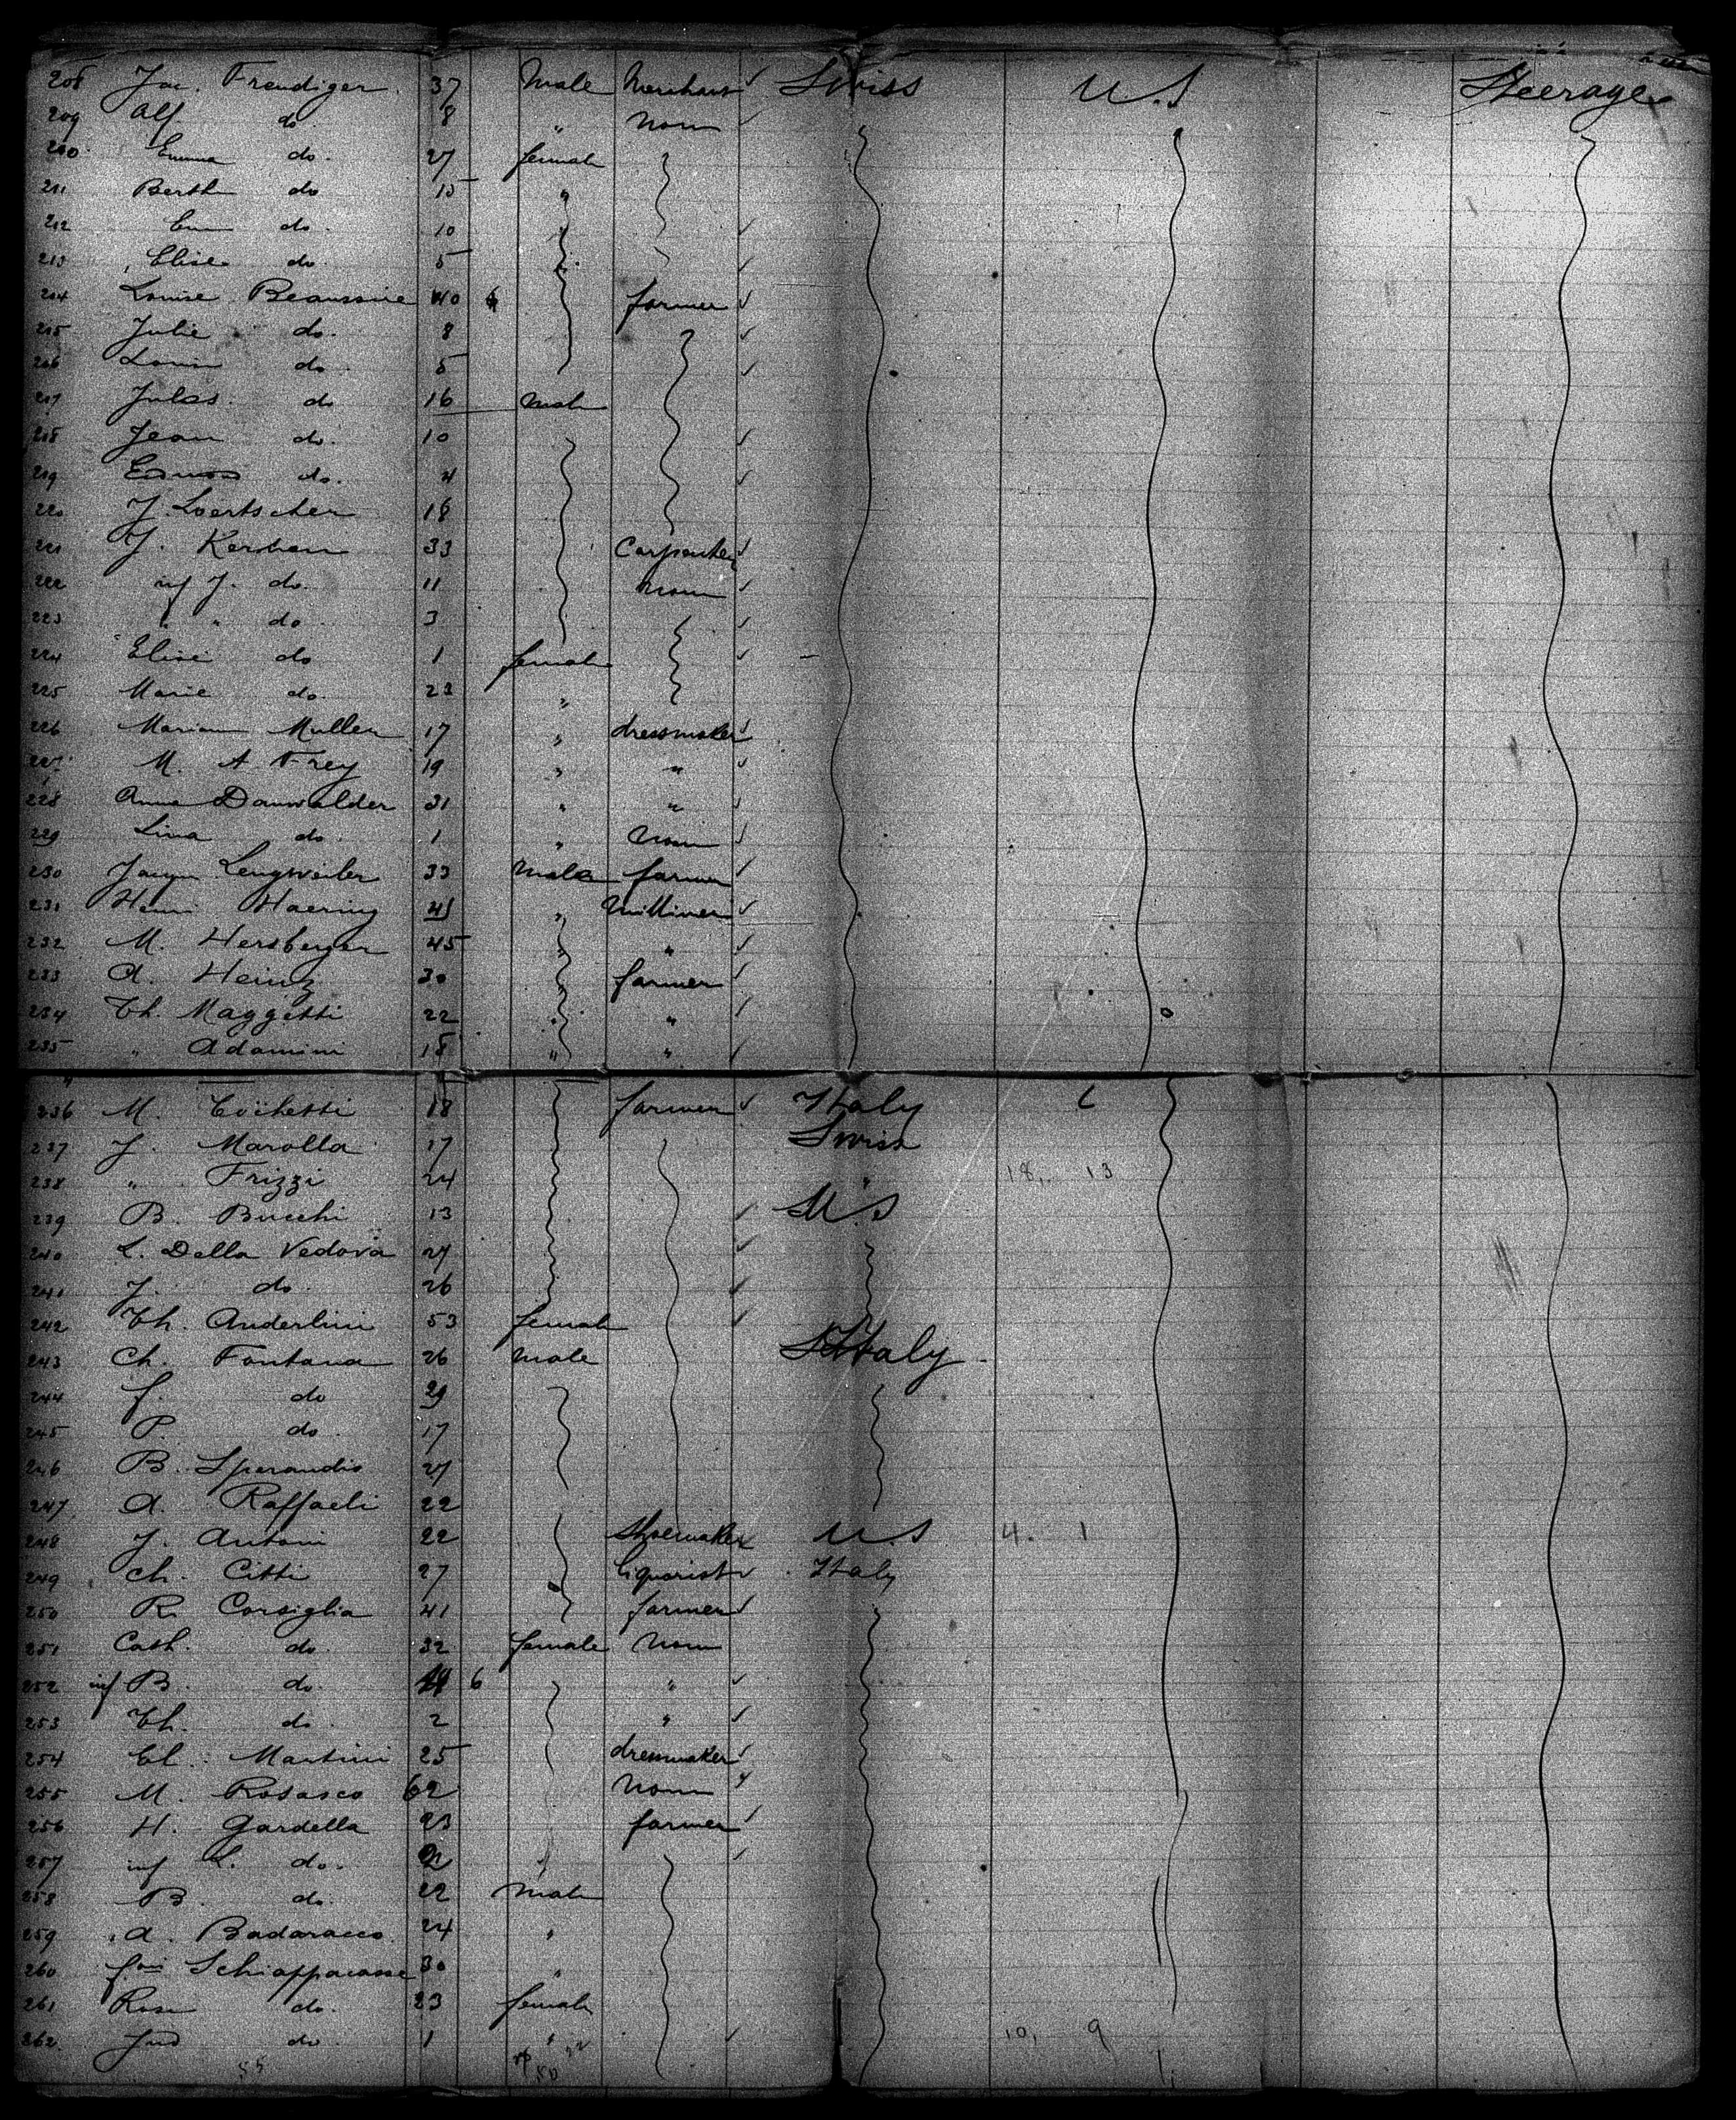 208 Jac. Freudiger 37 Male Merchant ✓ Swiss U.S Steerage
209 Alf do 8 " None ✓
210 Emma do. 27 female
211 Berth do 15 "
212 Em do. 10 ✓
213 Elise do. 5 ✓
214 Louise Beaussire 40 farmer ✓
215 Julie do. 8 ✓
216 Louise do. 5 ✓
217 Jules. do 16 Male
218 Jean do. 10 ✓
219 Edmond do. 4 ✓
220 J. Loertscher 18
221 J. Kerchen 33 Carpenter ✓
222 inf J. do. 11 None ✓
223 " " do. 3 ✓
224 Elise do 1 female ✓
225 Marie do. 23 "
226 Mariam Muller 17 " dressmaker ✓
227 M. A Frey 19 " " ✓
228 Anna Danwalder 31 " " ✓
229 Lina do. 1 " None ✓
230 Lengweiler 33 Male farmer ✓
231 Henri Haering 41 " Milliner ✓
232 M. Hersberger 45 " " ✓
233 A. Heinz 30 farmer ✓
234 Th. Maggetti 22 " " ✓
235 " Adamini 18 " " ✓
236 M. 18 farmer ✓ Italy 6
237 J. Marolla 17 Swiss
238 " Frizzi 24 " 18, 13
239 B. Bucchi 13 ✓ U.S
240 L. Della Vedova 27 ✓
241 J. do. 26 ✓
242 Th. Anderlini 53 female ✓
243 Ch. Fontana 26 male Italy
244 f. do 29
245 P. do. 17
246 B. Sperandio 27
247 A. Raffaeli 22
248 J. Antoni 22 Shoemaker U.S 4. 1
249 Ch. Citti 27 liquorist ✓ Italy
250 R. Corsiglia 41 farmer ✓
251 Cath. do. 32 female None
252 inf B. do. 6 " ✓
253 Th. do. 2 " ✓
254 Cl. Martini 25 dressmaker ✓
255 M. Rosasco 62 None
256 H. Gardella 23 farmer ✓
257 inf L. do. 2 ✓
258 B. do. 22 Male
259 A. Badaracco 24 "
260 Schiappacasse 30 "
261 Rosa do. 23 female
262. do 1 " ✓ 10, 9
55 50 22